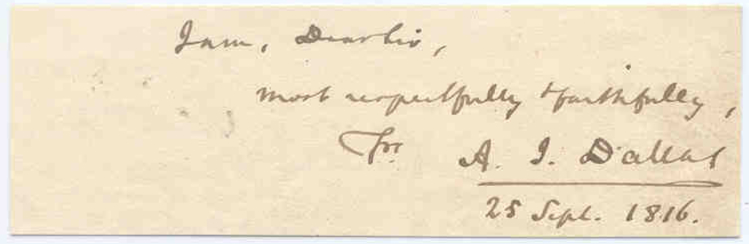 I am, Dear Sir,
most respectfully & faithfully,
Yr
A. J. Dallas
25 Sept. 1816.